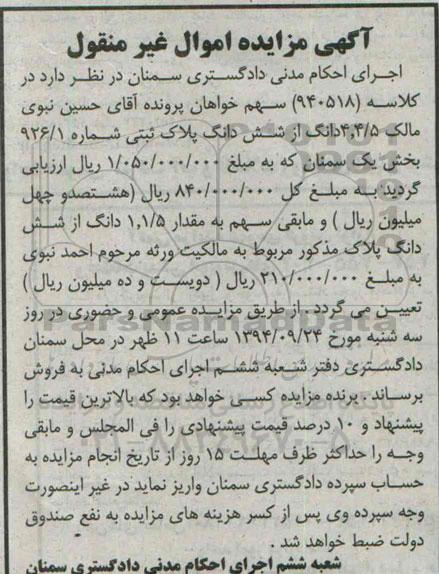 آگهی مزایده اموال غیر منقول
اجرای احکام مدنی دادگستری سمنان در نظر دارد در
کلاسه (۹۴۰۵۱۸) سهم خواهان پرونده آقای حسین نبوی
مالک ۴,۴/۵دانگ از شش دانگ پلاک ثبتی شماره ۹۲۶/۱
بخش یک سمنان که به مبلغ ۱/۰۵۰/۰۰۰/۰۰۰ ریال ارزیابی
گردید به مبلغ کل ۸۴۰/۰۰۰/۰۰۰ ریال (هشتصدو چهل
میلیون ریال ) و مابقی سهم به مقدار ۱,۱/۵ دانگ از شش
دانگ پلاک مذکور مربوط به مالکیت ورثه مرحوم احمد نبوی
به مبلغ ۲۱۰/۰۰۰/۰۰۰ ریال ( دویست و ده میلیون ریال )
تعیین می گردد . از طریق مزایده عمومی و حضوری در روز
سه شنبه مورخ ۱۳۹۴/۰۹/۲۴ ساعت ۱۱ ظهر در محل سمنان
دادگستری دفتر شعبه ششم اجرای احکام مدنی به فروش
برساند . برنده مزایده کسی خواهد بود که بالاترین قیمت را
پیشنهاد و ۱۰ درصد قیمت پیشنهادی را فی المجلس و مابقی
وجه را حداکثر ظرف مهلت ۱۵ روز از تاریخ انجام مزایده به
حساب سپرده دادگستری سمنان واریز نماید در غیر اینصورت
وجه سپرده وی پس از کسر هزینه های مزایده به نفع صندوق
دولت ضبط خواهد شد .
شعبه ششم اجرای احکام مدنی دادگستری سمنان
ParsNamadData
۰۲۱-۸۸۳۴۹۶۷۰-۵